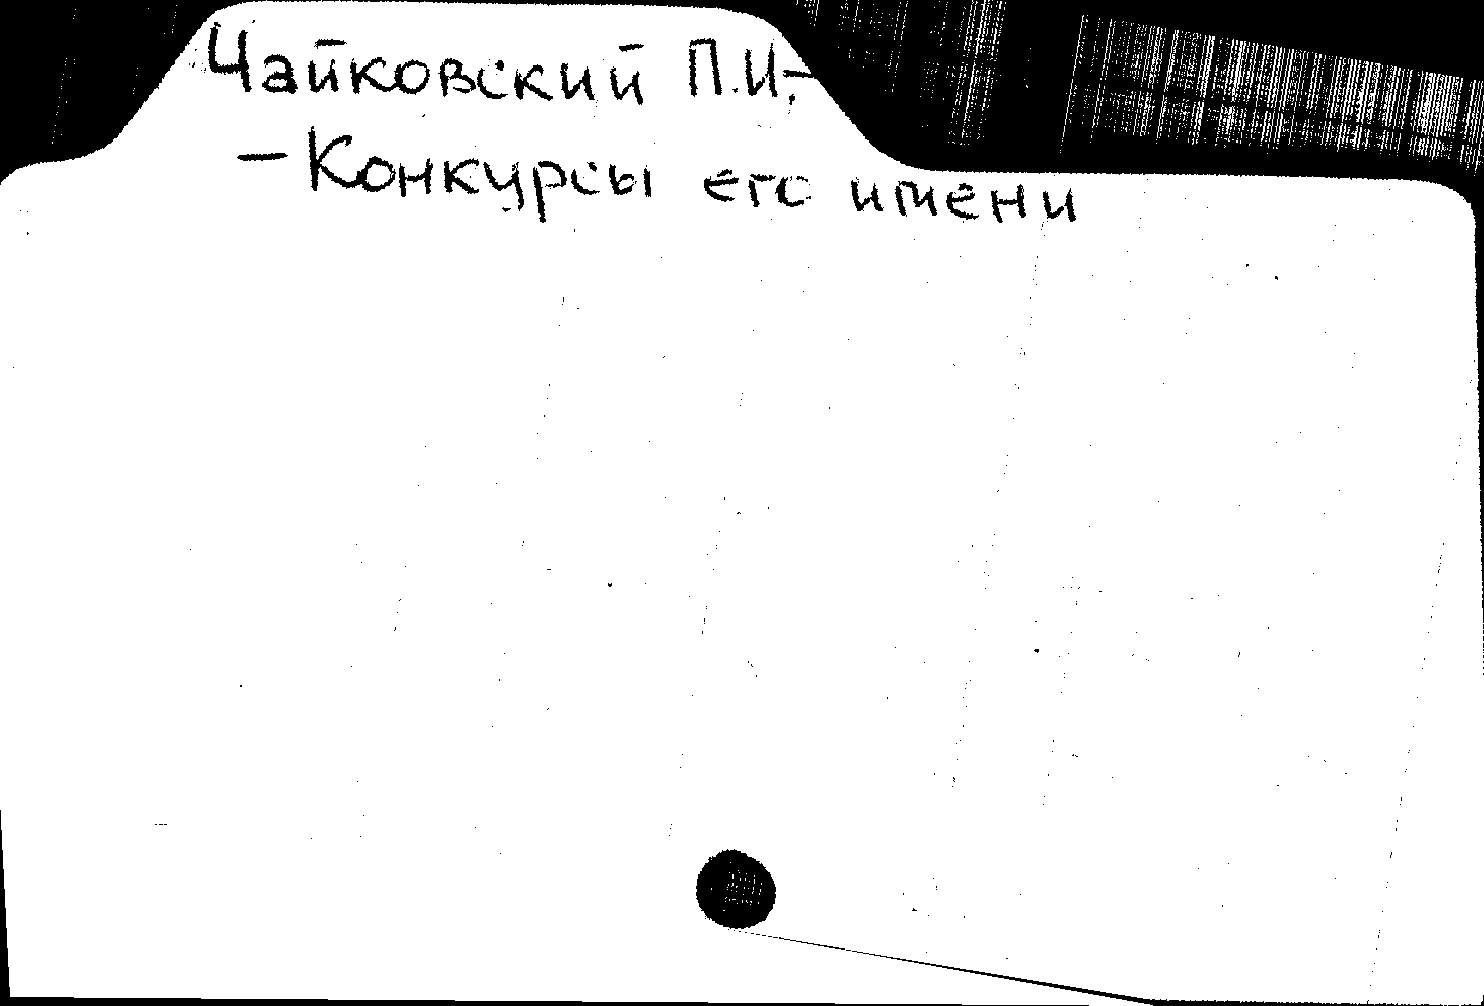 Чайковский П.И.-
- Конкурсы его имени